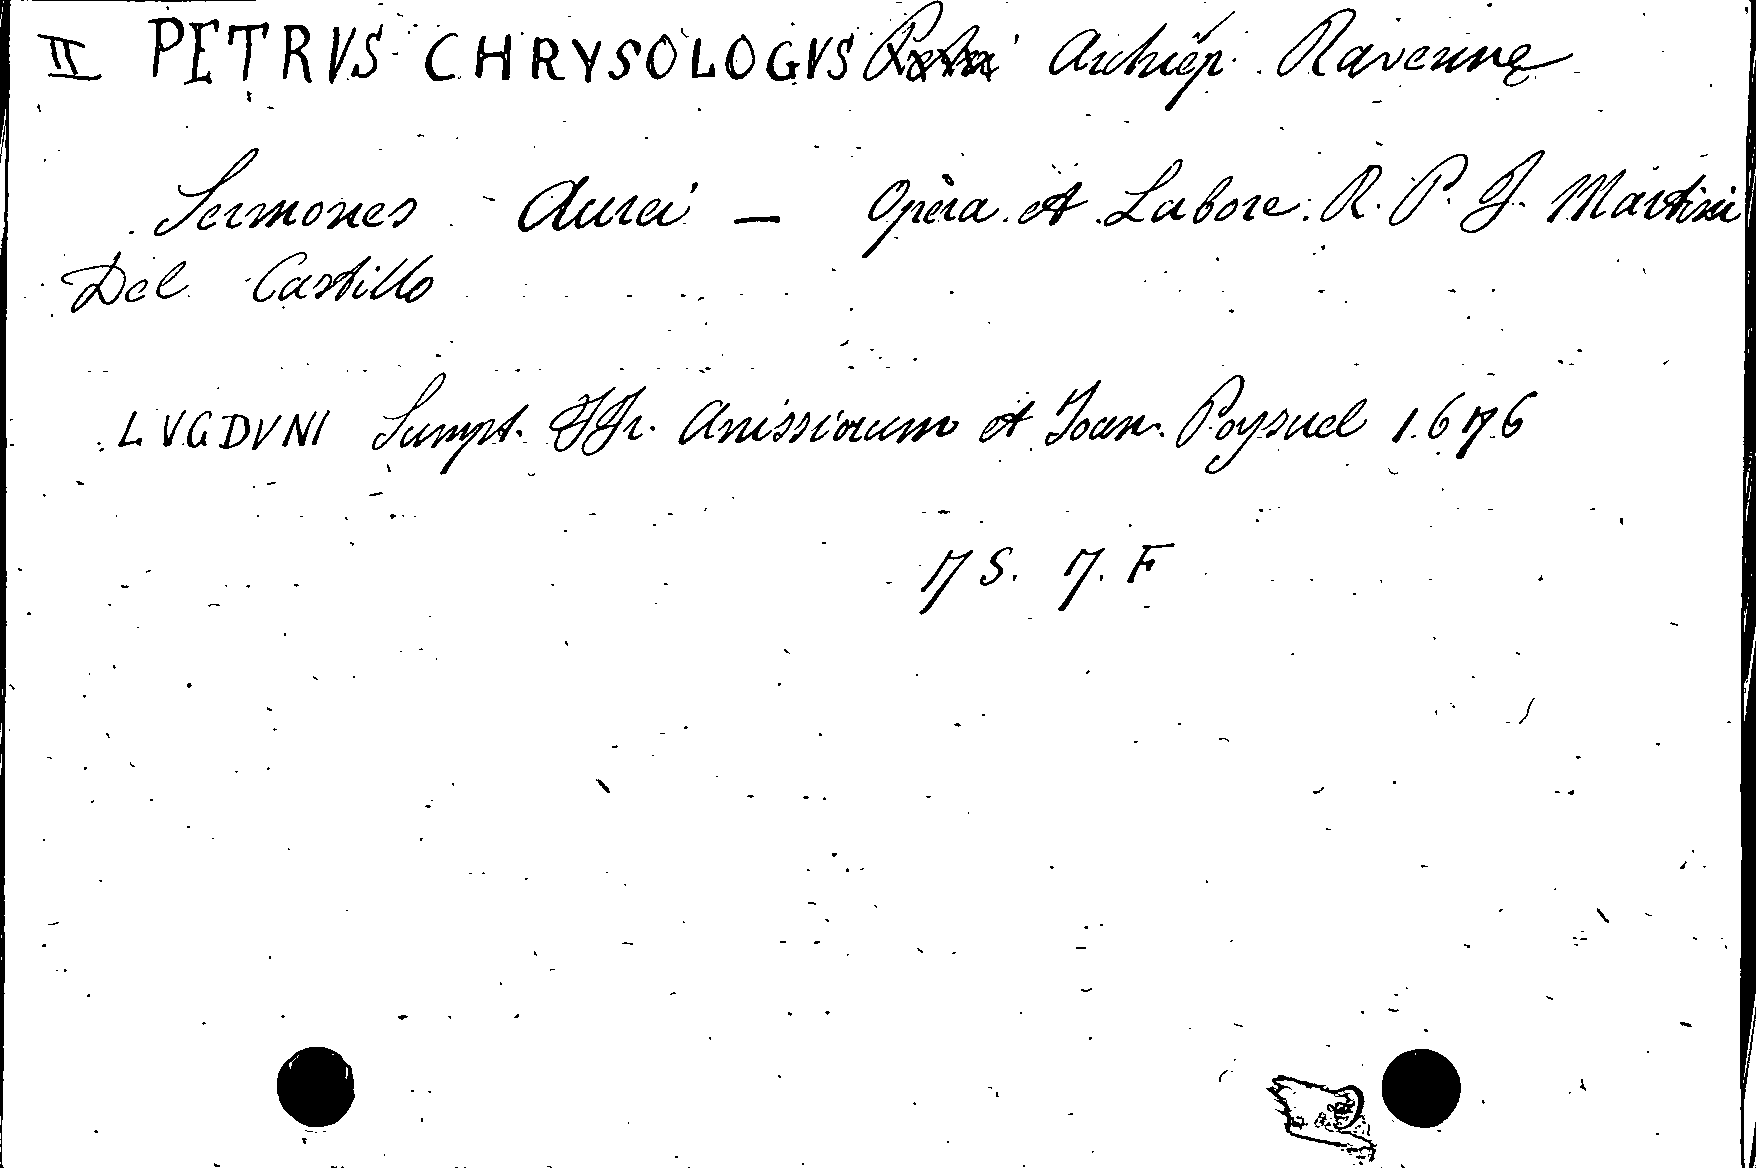 II PETRVS CHRYSOLOGVS Archiep. Ravennę
Sermones Aurei — Opera et Labore R. P. J. Martini
Del Castillo
LVGDVNI Sumpt. FFr. Anissiorum et Joan. Poysuel 1676
7 S. 7. F